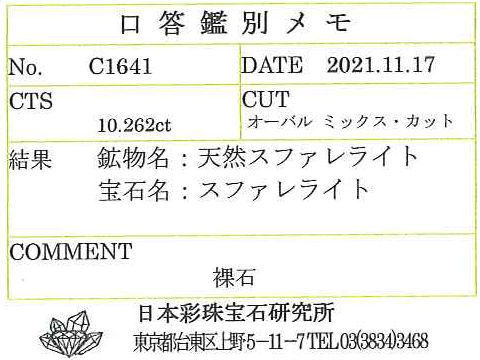 口答鑑別メモ
No. C1641 DATE 2021.11.17
CTS CUT
10.262ct オーバル ミックス・カット
結果 鉱物名：天然スファレライト
宝石名：スファレライト
COMMENT
裸石
日本彩珠宝石研究所
東京都台東区上野5－11－7 TEL03(3834)3468